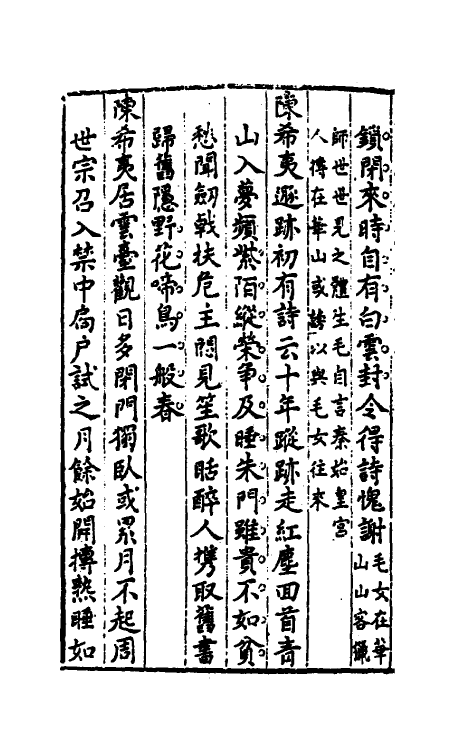 鎖閉來時自有白雲封令得詩愧謝毛女在華山山客獵
師世世見之體生毛自言秦始皇宮
人傳在華山或謗以與毛女往來
陳希夷遯跡初有詩云十年蹤跡走紅塵回首青
山入夢頻紫陌縱榮爭及睡朱門雖貴不如貧
愁聞劒戟扶危主悶見笙歌聒醉人攜取舊書
歸舊隱野花啼鳥一般春
陳希夷居雲臺觀日多閉門獨臥或累月不起周
世宗召入禁中扃户試之月餘始開摶熟睡如